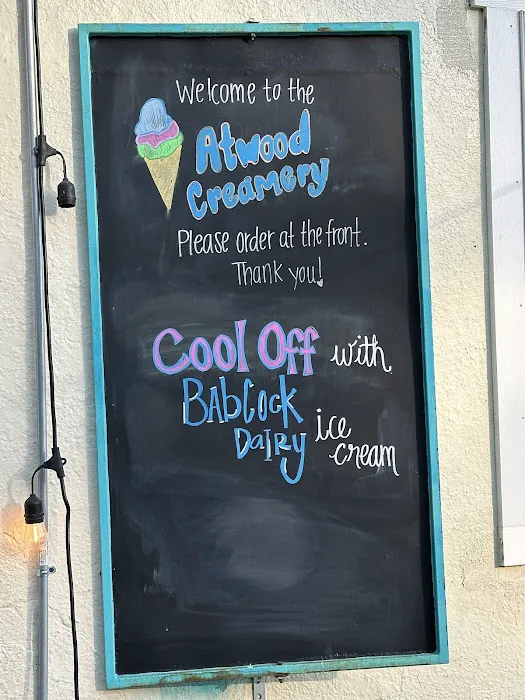 Welcome to the
Atwood
Creamery
Please order at the front.
Thank you!
Cool Off with
Babcock
Dairy ice
cream